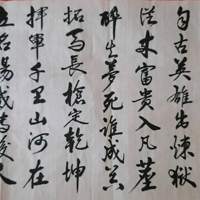 自古英雄出煉獄
從来富貴入凡塵
醉生夢死誰成器
拓馬長槍定乾坤
揮軍千里山河在
立名揚威傳後人